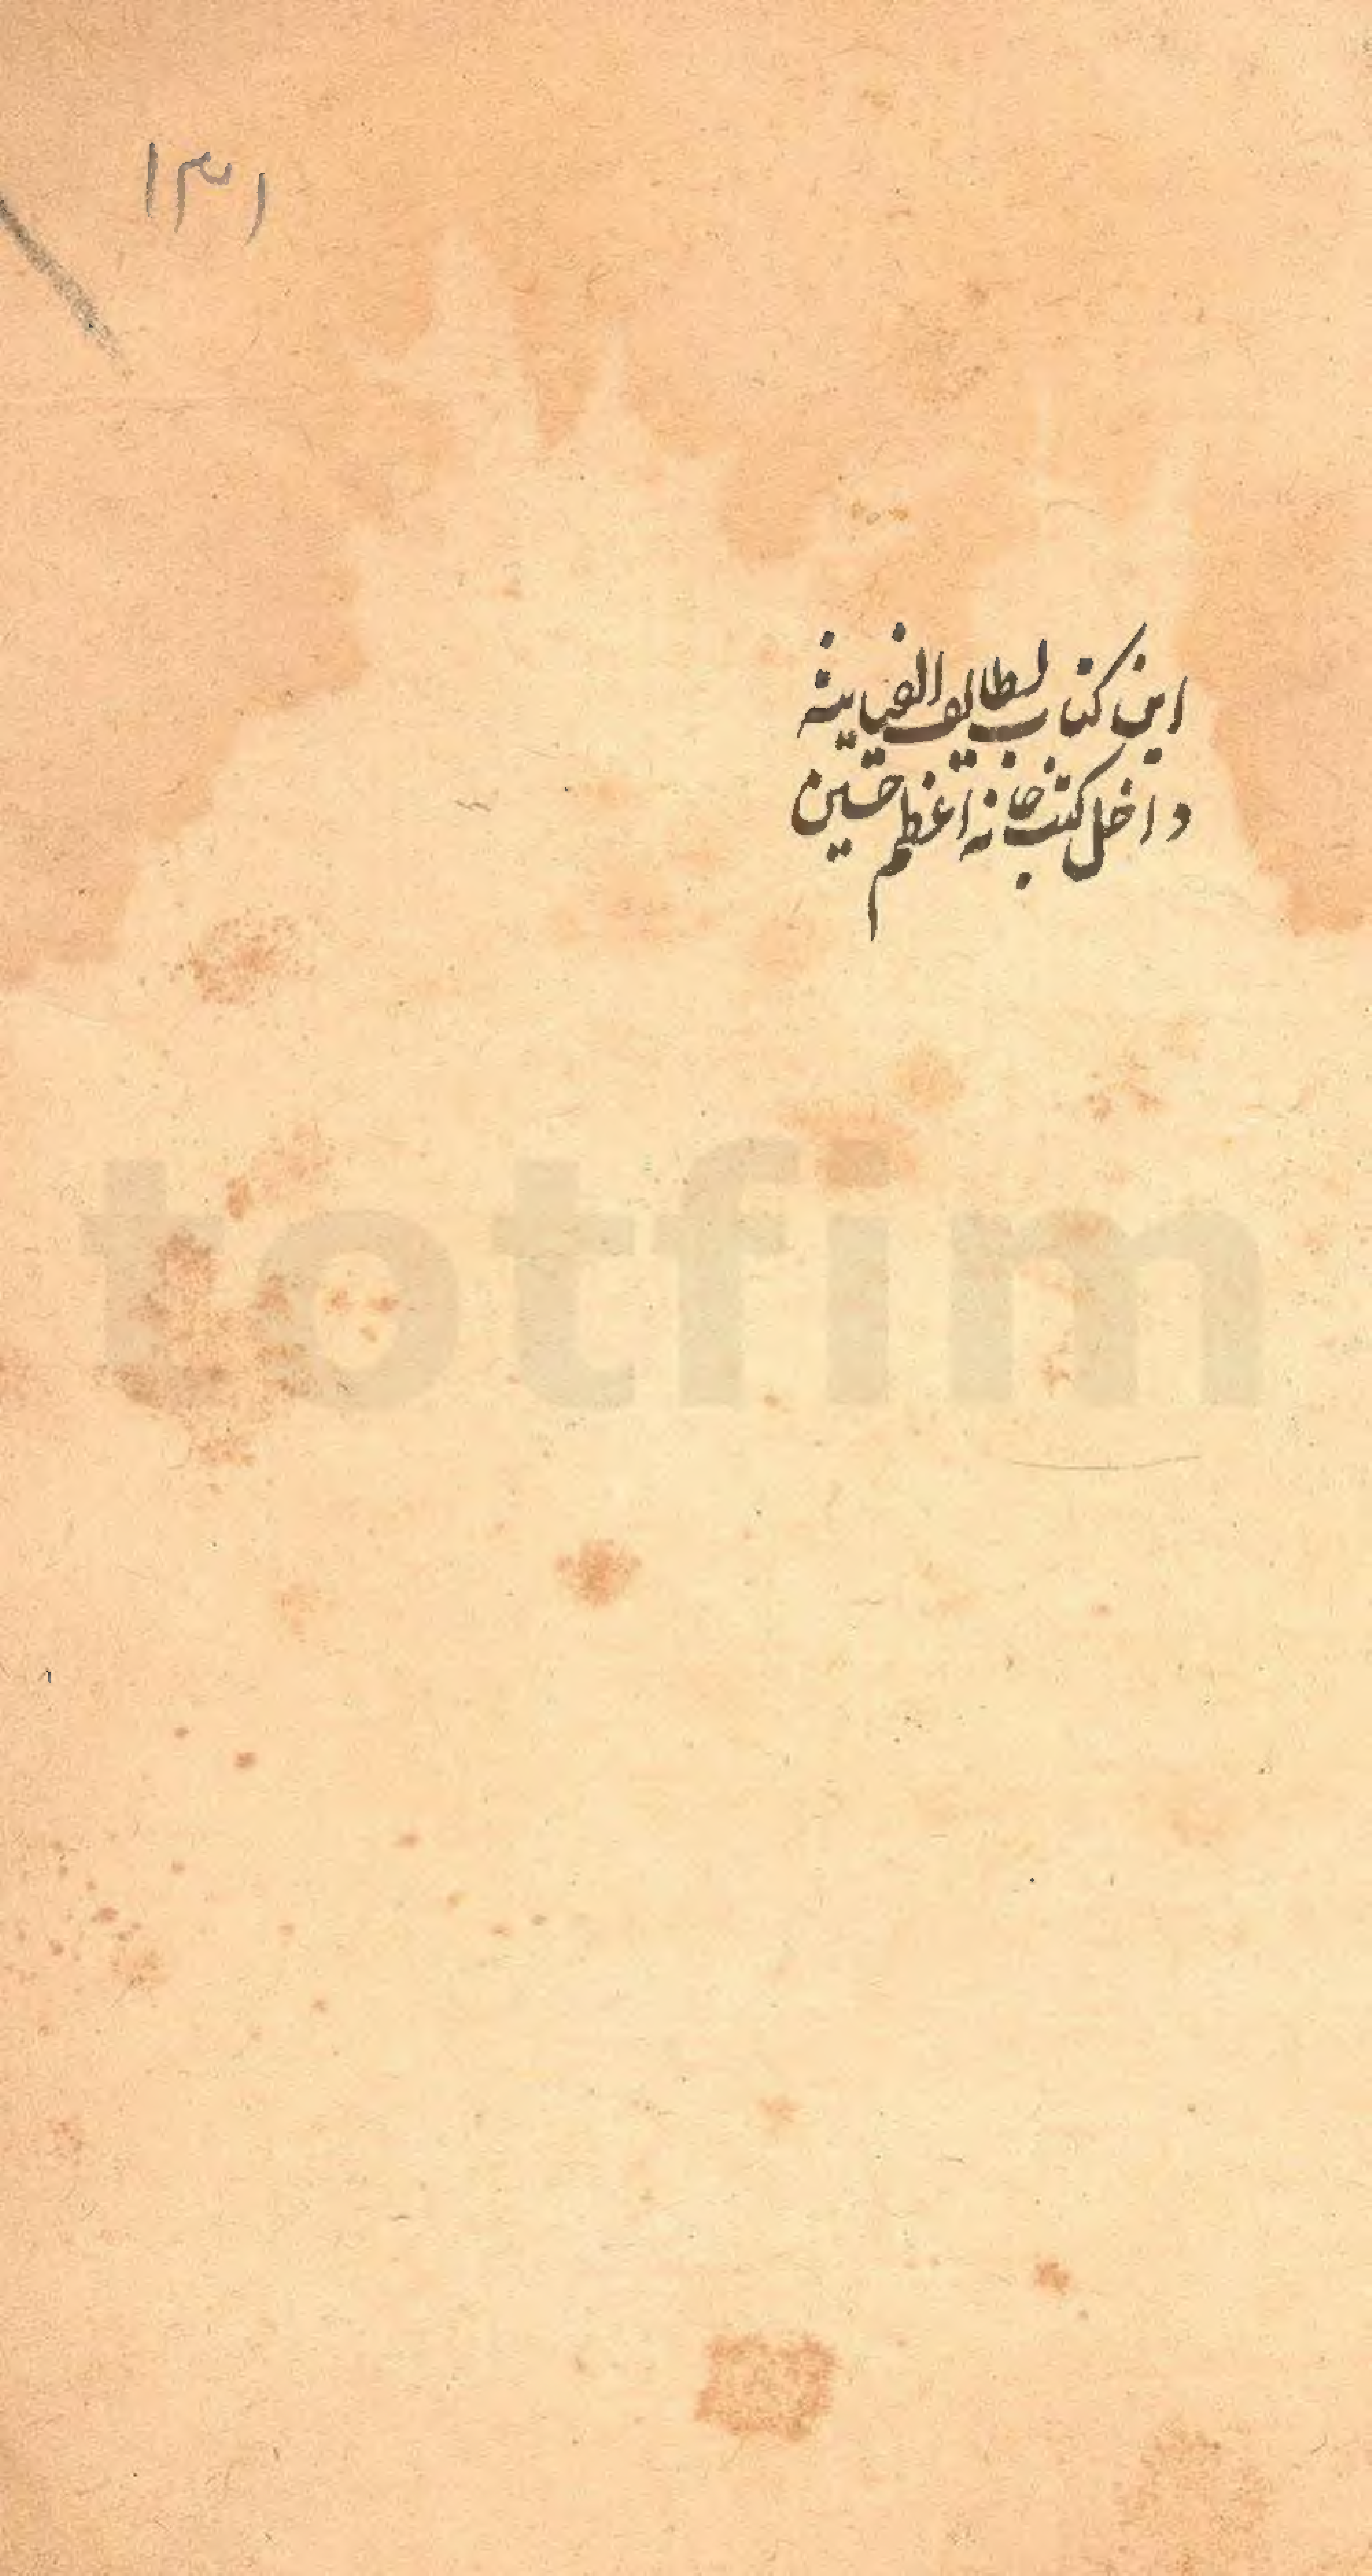 ۱۳۱
این کتاب لطایف الغیاثیه
داخل کتب خانه اعظم حسین
totfim